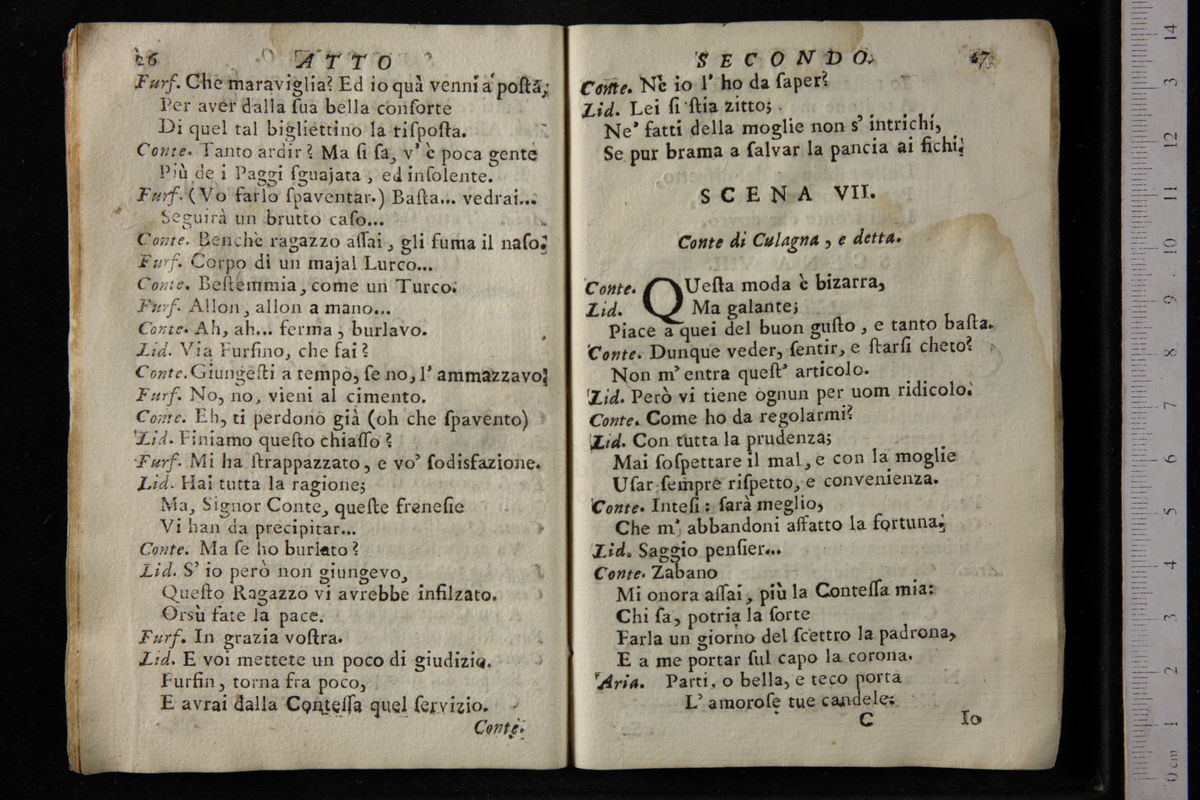 26 ATTO
Furf. Che maraviglia? Ed io quà venni a' poſta;
Per aver dalla ſua bella conſorte
Di quel tal bigliettino la riſpoſta.
Conte. Tanto ardir? Ma ſi ſa, v' è poca gente
Più de i Paggi ſguajata, ed inſolente.
Furf. (Vo farlo ſpaventar.) Baſta... vedrai...
Seguirà un brutto caſo...
Conte. Benchè ragazzo aſſai, gli fuma il naſo.
Furf. Corpo di un majal Lurco...
Conte. Beſtemmia, come un Turco.
Furf. Allon, allon a mano...
Conte. Ah, ah... ferma, burlavo.
Lid. Via Furfino, che fai?
Conte. Giungeſti a tempo, ſe no, l' ammazzavo.
Furf. No, no, vieni al cimento.
Conte. Eh, ti perdono già (oh che ſpavento)
Lid. Finiamo queſto chiaſſo?
Furf. Mi ha ſtrappazzato, e vo' ſodisfazione.
Lid. Hai tutta la ragione;
Ma, Signor Conte, queſte freneſie
Vi han da precipitar...
Conte. Ma ſe ho burlato?
Lid. S' io però non giungevo,
Queſto Ragazzo vi avrebbe infilzato.
Orsù fate la pace.
Furf. In grazia voſtra.
Lid. E voi mettete un poco di giudizio.
Furfin, torna fra poco,
E avrai dalla Conteſſa quel ſervizio.
Conte.
SECONDO. 27
Conte. Nè io l' ho da ſaper?
Lid. Lei ſi ſtia zitto;
Ne' fatti della moglie non s' intrichi,
Se pur brama a ſalvar la pancia ai fichi.
SCENA VII.
Conte di Culagna, e detta.
Conte. QUeſta moda è bizarra,
Lid. Ma galante;
Piace a quei del buon guſto, e tanto baſta.
Conte. Dunque veder, ſentir, e ſtarſi cheto?
Non m' entra queſt' articolo.
Lid. Però vi tiene ognun per uom ridicolo.
Conte. Come ho da regolarmi?
Lid. Con tutta la prudenza;
Mai ſoſpettare il mal, e con la moglie
Uſar ſempre riſpetto, e convenienza.
Conte. Inteſi: ſarà meglio,
Che m' abbandoni affatto la fortuna.
Lid. Saggio penſier...
Conte. Zabano
Mi onora aſſai, più la Conteſſa mia:
Chi ſa, potria la ſorte
Farla un giorno del ſcettro la padrona,
E a me portar ſul capo la corona.
Aria. Parti, o bella, e teco porta
L' amoroſe tue candele:
C Io